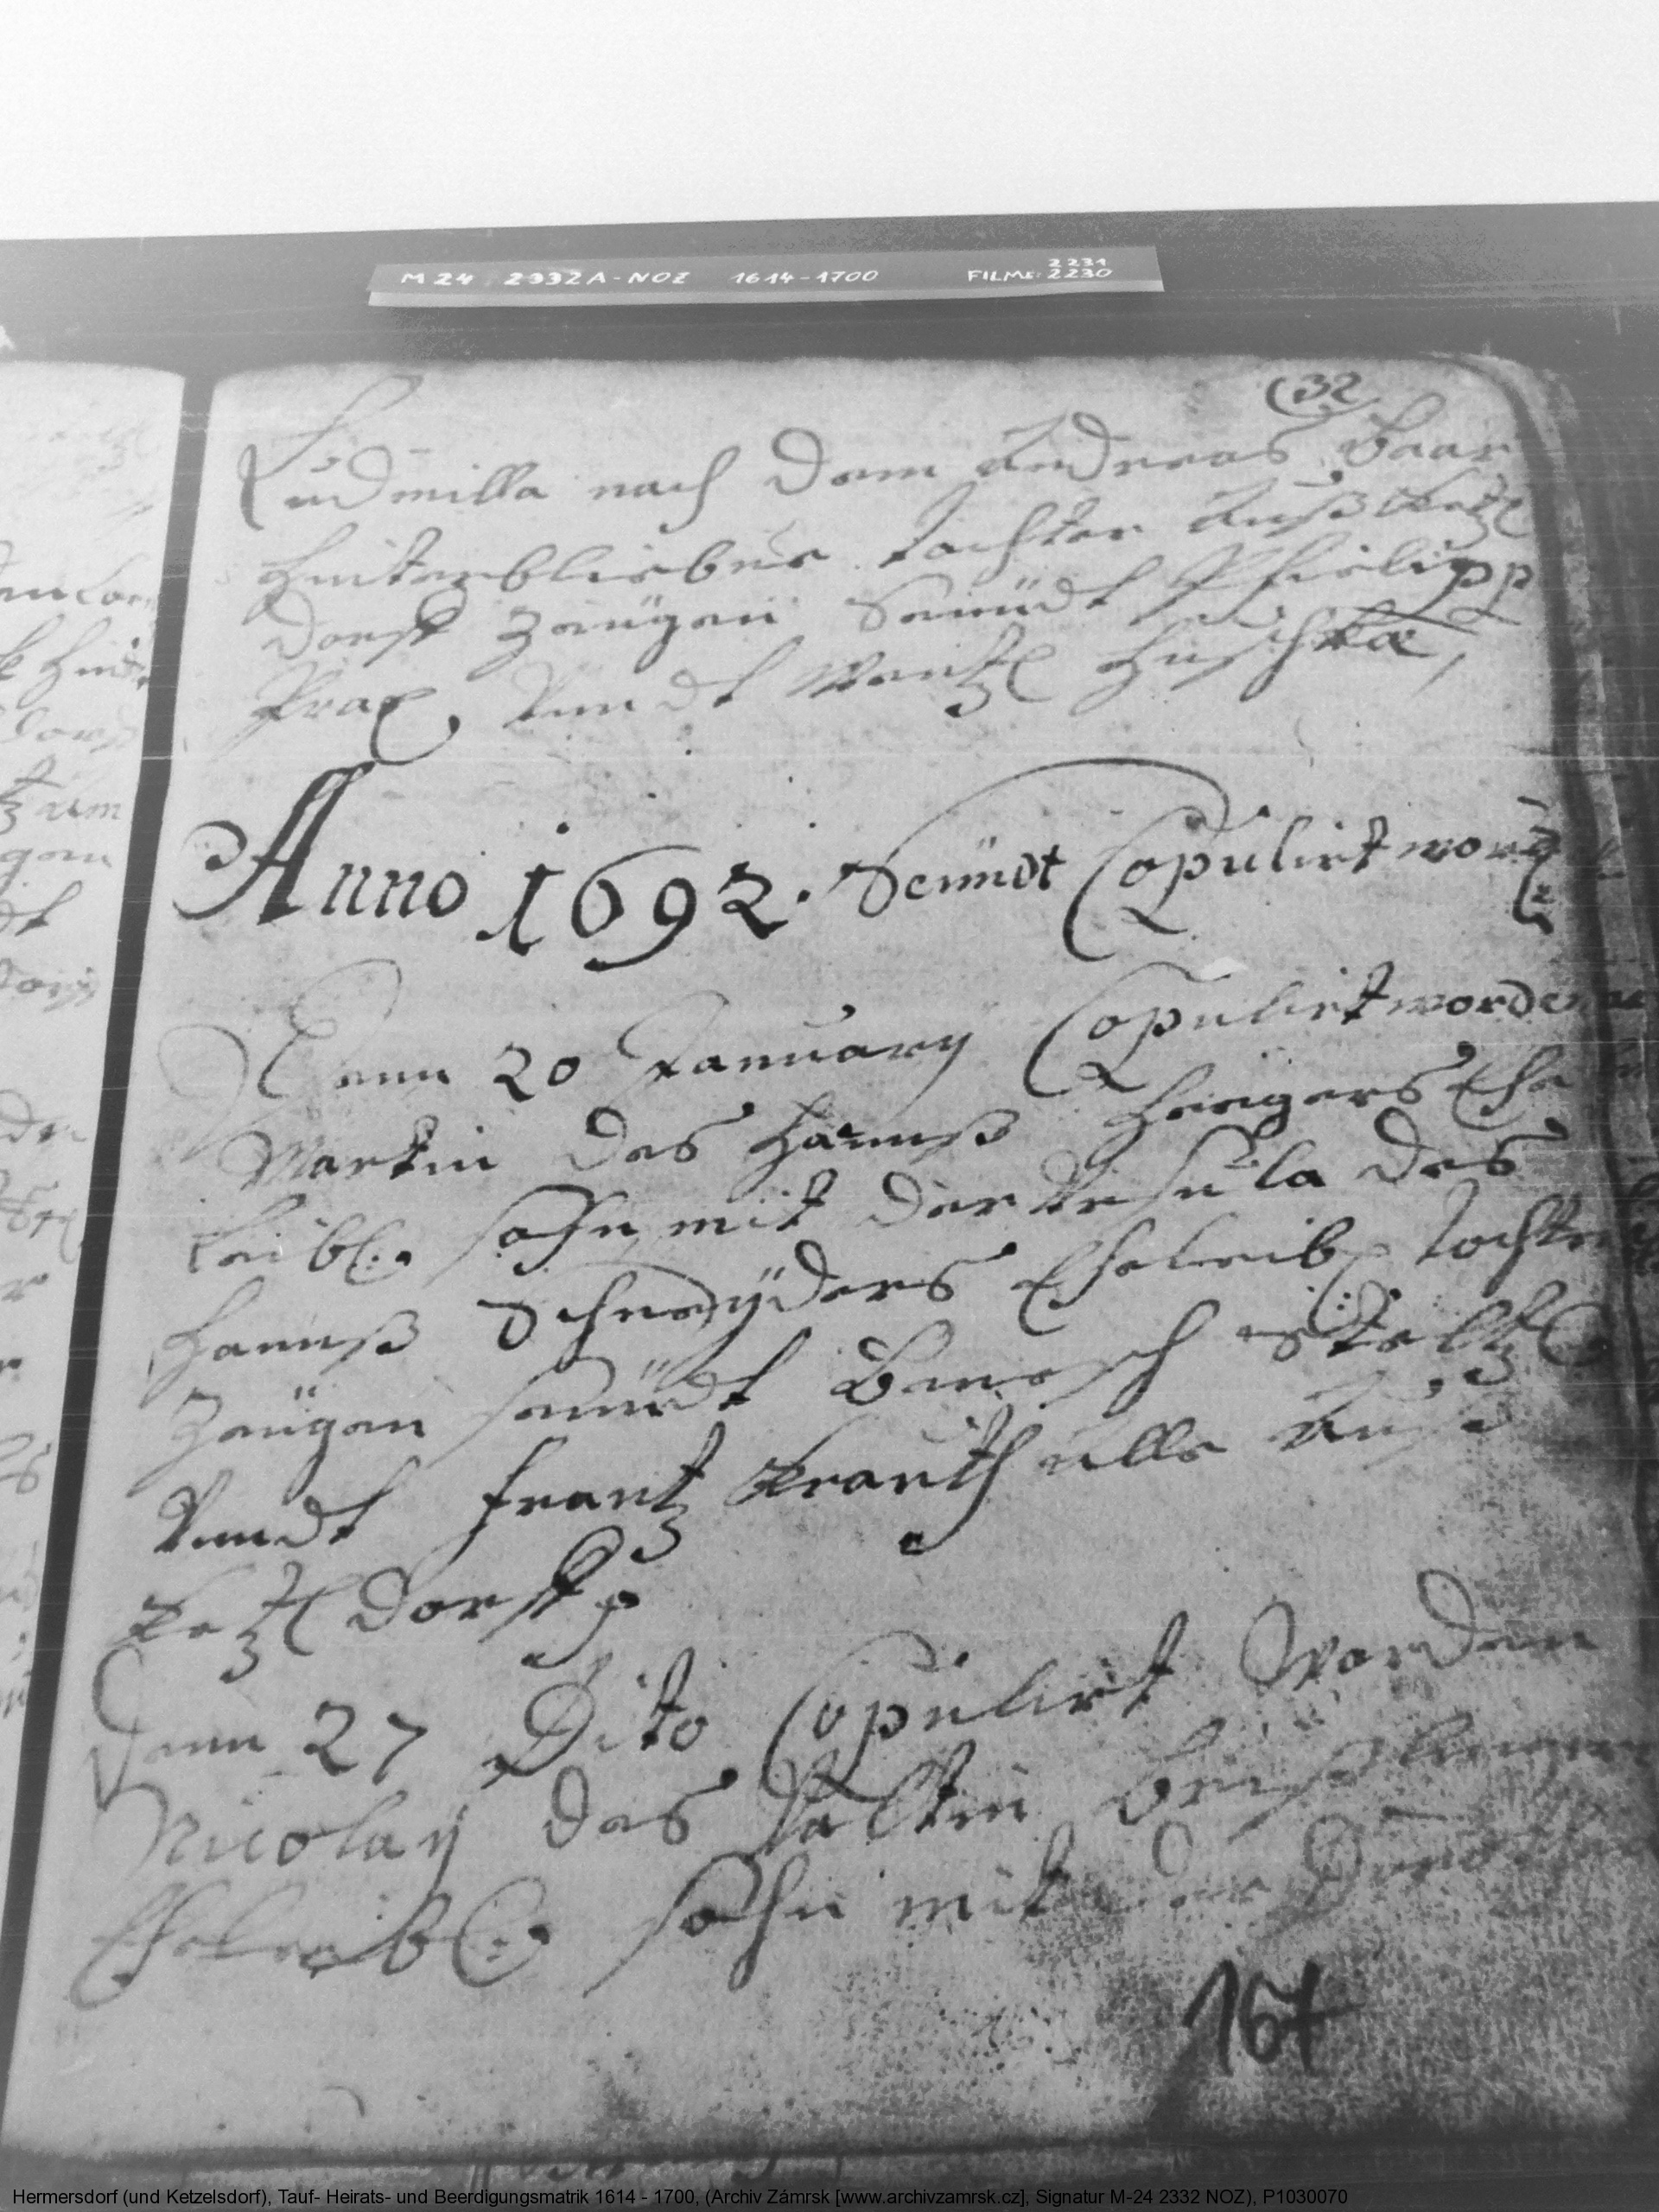 M 24 2332A-NOZ 1614-1700 FILME: 2231 2230
(32
Ludmilla nach dem Andreas Baar
hinterbliebene tochter Auß Ketzl
dorff Zeugen Seindt Philipp
Prax, Vnndt Wentzl Huschka,
Anno 1692. Seindt Copulirt word
Denn 20 January Copulirt worden
Martin des Hannß Ehe
leibl: sohn mit der Ursula des
Hannß Schneÿders Eheleibl: tochter
Zeügen seindt Benesch Steltzl
Vnndt Frantz Krauth alle Auß
Ketzldorff
Denn 27 Dito Copulirt Worden
Nicolaÿ des Valtin
Eheleibl: sohn mit der
167
Hermersdorf (und Ketzelsdorf), Tauf- Heirats- und Beerdigungsmatrik 1614 - 1700, (Archiv Zámrsk [www.archivzamrsk.cz], Signatur M-24 2332 NOZ), P1030070